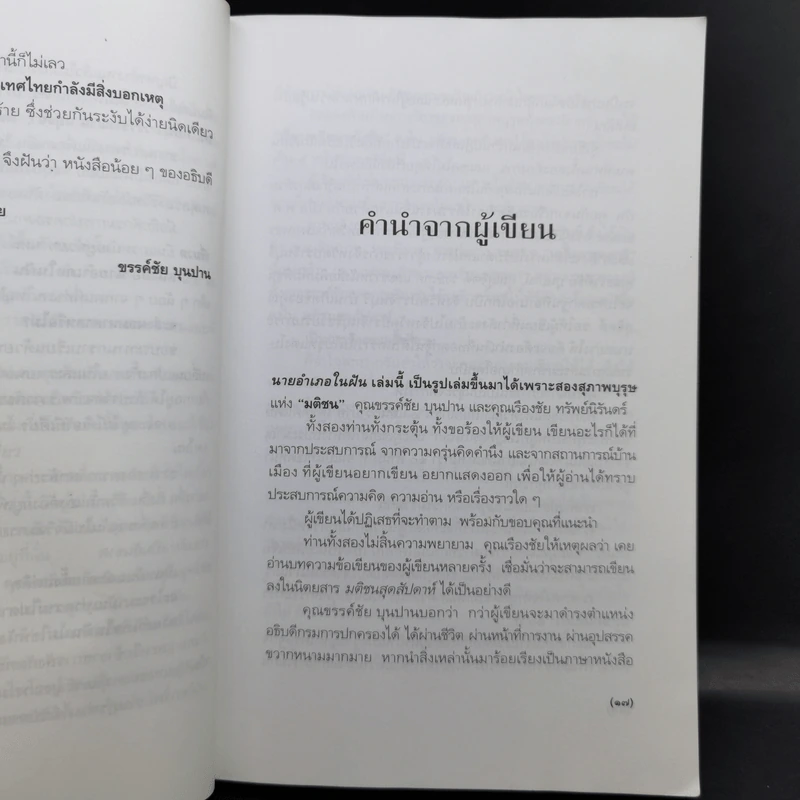 านี้ก็ไม่เลว
เทศไทยกำลังมีสิ่งบอกเหตุ
ร้าย ซึ่งช่วยกันระงับได้ง่ายนิดเดียว
จึงฝันว่า หนังสือน้อย ๆ ของอธิบดี
ย
ขรรค์ชัย บุนปาน
คำนำจากผู้เขียน
นายอำเภอในฝัน เล่มนี้ เป็นรูปเล่มขึ้นมาได้เพราะสองสุภาพบุรุษ
แห่ง “มติชน” คุณขรรค์ชัย บุนปาน และคุณเรืองชัย ทรัพย์นิรันดร์
ทั้งสองท่านทั้งกระตุ้น ทั้งขอร้องให้ผู้เขียน เขียนอะไรก็ได้ที่
มาจากประสบการณ์ จากความครุ่นคิดคำนึง และจากสถานการณ์บ้าน
เมือง ที่ผู้เขียนอยากเขียน อยากแสดงออก เพื่อให้ผู้อ่านได้ทราบ
ประสบการณ์ความคิด ความอ่าน หรือเรื่องราวใด ๆ
ผู้เขียนได้ปฏิเสธที่จะทำตาม พร้อมกับขอบคุณที่แนะนำ
ท่านทั้งสองไม่สิ้นความพยายาม คุณเรืองชัยให้เหตุผลว่า เคย
อ่านบทความข้อเขียนของผู้เขียนหลายครั้ง เชื่อมั่นว่าจะสามารถเขียน
ลงในนิตยสาร มติชนสุดสัปดาห์ ได้เป็นอย่างดี
คุณขรรค์ชัย บุนปานบอกว่า กว่าผู้เขียนจะมาดำรงตำแหน่ง
อธิบดีกรมการปกครองได้ ได้ผ่านชีวิต ผ่านหน้าที่การงาน ผ่านอุปสรรค
ขวากหนามมากมาย หากนำสิ่งเหล่านั้นมาร้อยเรียงเป็นภาษาหนังสือ
(๑๗)